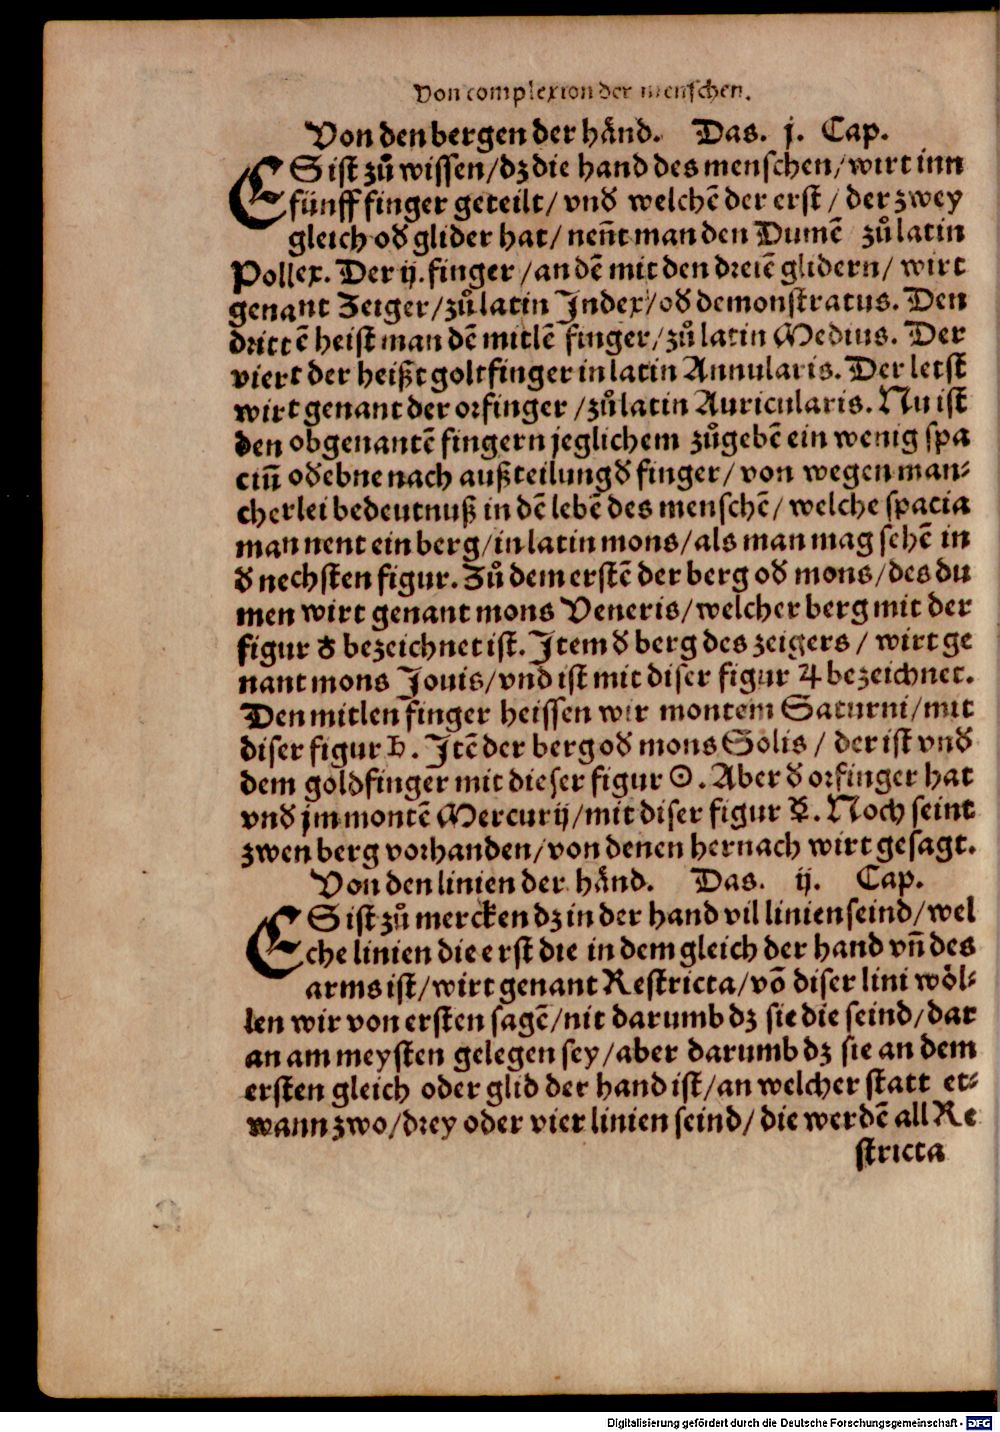 Von complexion der menschen.
Von den bergen der händ. Das. j. Cap.
ES ist zů wissen/dz die hand des menschen/wirt inn
fünff finger geteilt/ vnd welchē der erst / der zwey
gleich od glider hat/ nen̄t man den Dumē zů latin
Pollex. Der ij. finger /an dē mit den dreiē glidern/ wirt
genant Zeiger/zů latin Index/od demonstratus. Den
drittē heist man dē mitlē finger/zů latin Medius. Der
viert der heißt goltfinger in latin Annularis. Der letst
wirt genant der orfinger /zů latin Auricularis. Nu ist
den obgenantē fingern jeglichem zůgebē ein wenig spa
ciū od ebne nach außteilung d finger/ von wegen man⸗
cherlei bedeutnuß in dē lebē des menschē/ welche spacia
man nent ein berg/in latin mons/als man mag sehē in
d nechsten figur. Zů dem erstē der berg od mons/des du
men wirt genant mons Veneris/welcher berg mit der
figur ♁ bezeichnet ist. Item d berg des zeigers / wirt ge
nant mons Jouis/vnd ist mit diser figur ♃ bezeichnet.
Den mitlen finger heissen wir montem Saturni/mit
diser figur ♄. Jtē der berg od mons Solis / der ist vnd
dem goldfinger mit dieser figur ☉. Aber d orfinger hat
vnd jm montē Mercurij/mit diser figur ☿. Noch seint
zwen berg vorhanden/von denen hernach wirt gesagt.
Von den linien der händ. Das. ij. Cap.
ES ist zů mercken dz in der hand vil linien seind/wel
che linien die erst die in dem gleich der hand vn̄ des
arms ist/wirt genant Restricta/vō diser lini wöl⸗
len wir von ersten sagē/nit darumb dz sie die seind/dar
an am meysten gelegen sey/aber darumb dz sie an dem
ersten gleich oder glid der hand ist/an welcher statt et⸗
wann zwo/drey oder vier linien seind/ die werdē all Re
stricta
Digitalisierung gefördert durch die Deutsche Forschungsgemeinschaft - DFG